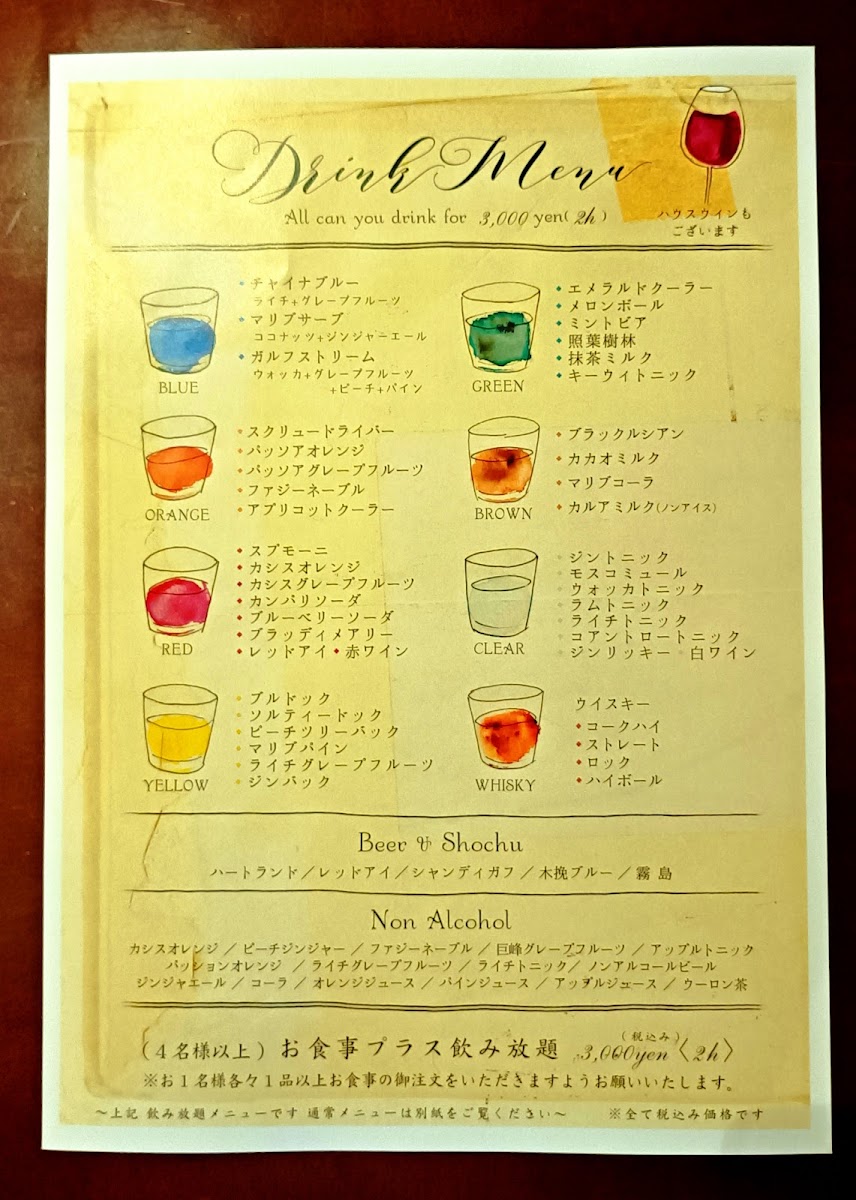 Drink Menu
All can you drink for 3,000 yen(2h)
ハウスワインも
ございます
チャイナブルー
ライチ+グレープフルーツ
マリブサーブ
ココナッツ+ジンジャーエール
ガルフストリーム
ウォッカ+グレープフルーツ
+ピーチ+パイン
BLUE
エメラルドクーラー
メロンボール
ミントビア
照葉樹林
抹茶ミルク
キーウィトニック
GREEN
スクリュードライバー
パッソアオレンジ
パッソアグレープフルーツ
ファジーネーブル
アプリコットクーラー
ORANGE
ブラックルシアン
カカオミルク
マリブコーラ
カルアミルク(ノンアイス)
BROWN
スプモーニ
カシスオレンジ
カシスグレープフルーツ
カンパリソーダ
ブルーベリーソーダ
ブラッディメアリー
レッドアイ 赤ワイン
RED
ジントニック
モスコミュール
ウォッカトニック
ラムトニック
ライチトニック
コアントロートニック
ジンリッキー 白ワイン
CLEAR
ブルドック
ソルティードック
ピーチツリーバック
マリブパイン
ライチグレープフルーツ
ジンバック
YELLOW
ウイスキー
コークハイ
ストレート
ロック
ハイボール
WHISKY
Beer & Shochu
ハートランド／レッドアイ／シャンディガフ／木挽ブルー／霧島
Non Alcohol
カシスオレンジ／ピーチジンジャー／ファジーネーブル／巨峰グレープフルーツ／アップルトニック
パッションオレンジ／ライチグレープフルーツ／ライチトニック／ノンアルコールビール
ジンジャエール／コーラ／オレンジジュース／パインジュース／アップルジュース／ウーロン茶
(４名様以上) お食事プラス飲み放題 3,000yen(税込み)〈2h〉
※お１名様各々１品以上お食事の御注文をいただきますようお願いいたします。
～上記 飲み放題メニューです 通常メニューは別紙をご覧ください～ ※全て税込み価格です